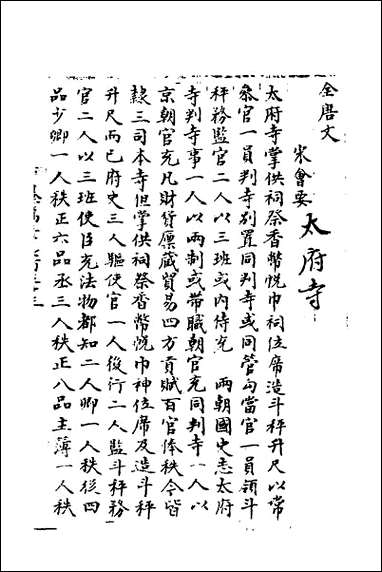 全唐文
宋會要
太府寺
太府寺掌供祠祭香幣帨巾祠位席造斗秤升尺以常
叅官一員判寺别置同判寺或同管勾當官一員領斗
秤務監官二人以三班或内侍充 兩朝國史志太府
寺判寺事一人以兩制或帶職朝官充同判寺一人以
京朝官充凡財貨廪藏貿易四方貢賦百官俸秩今皆
隸三司本寺但掌供祠祭香幣帨巾神位席及造斗秤
升尺而已府史三人驅使官一人後行二人監斗秤務
官二人以三班使臣充法物都知二人卿一人秩從四
品少卿一人秩正六品丞三人秩正八品主簿一人秩